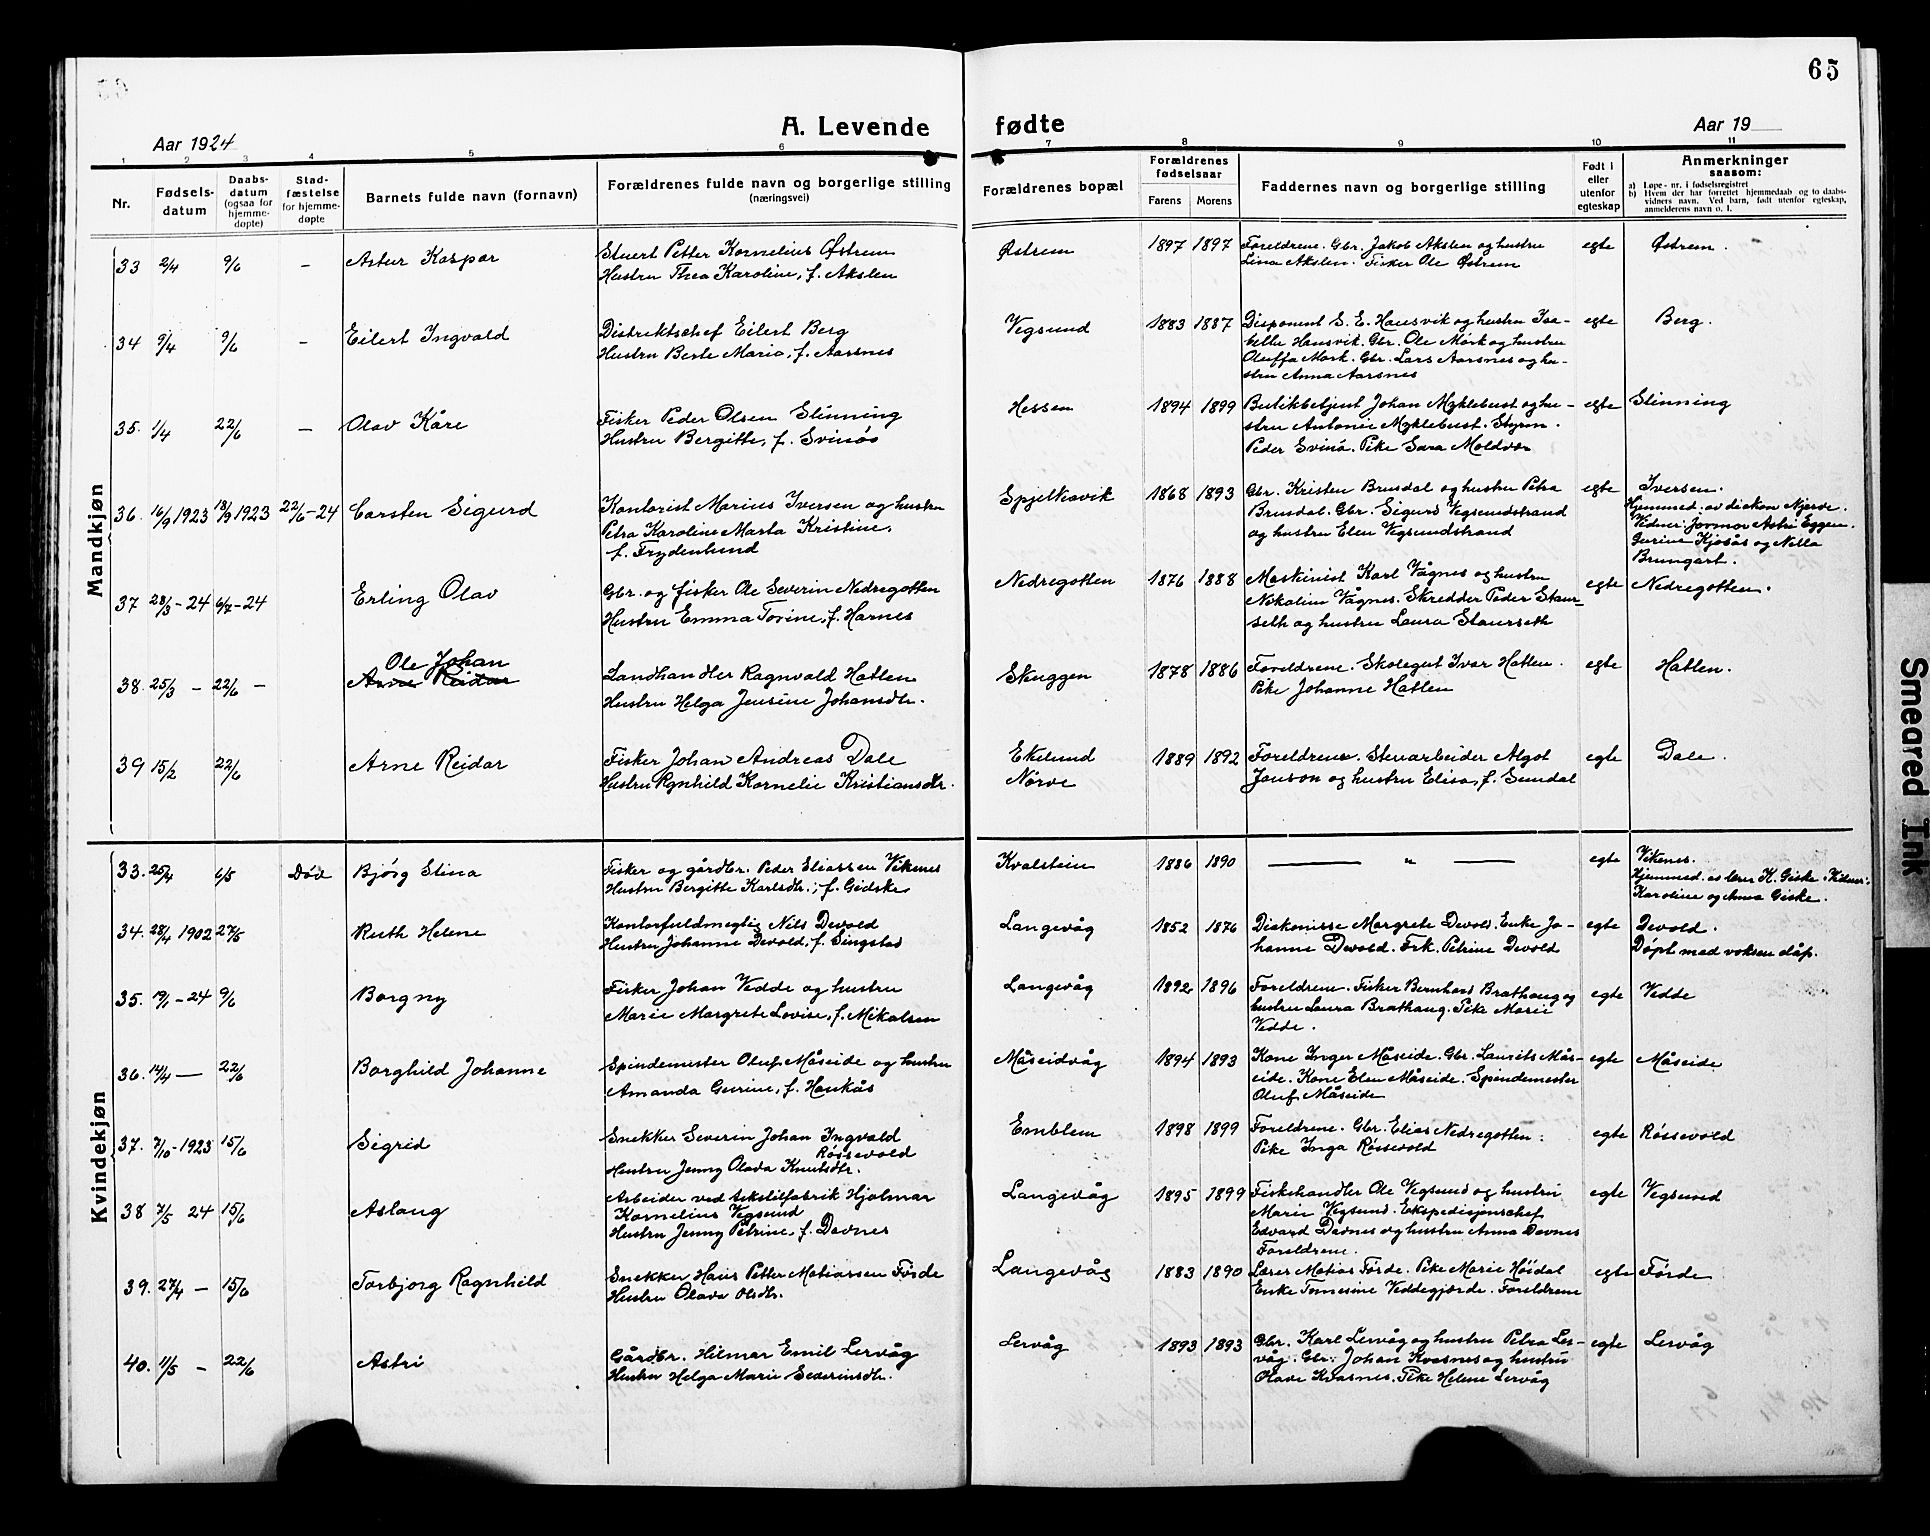 65
Aar 1924
A. Levende fødte
Aar 19
1 2 3 4 5 6 7 8 9 10 11
Nr.
Fødsels-
datum
Daabs-
datum
(ogsaa for
hjemme-
døpte)
Stad-
fæstelse
for hjemme-
døpte
Barnets fulde navn (fornavn)
Forældrenes fulde navn og borgerlige stilling
(næringsvei)
Forældrenes bopæl
Forældrenes
fødselsaar
Farens Morens
Faddernes navn og borgerlige stilling
Født i
eller
utenfor
egteskap
Anmerkninger
saasom:
a) Løpe-nr. i fødselsregistret
b) Hvem der har forrettet hjemmedaab og to daabs-
vidners navn. Ved barn, født utenfor egteskap,
anmelderens navn o. l.
Mandkjøn
33 2/4 9/6 - Astur Kaspar
Stuert Petter Kornelius Østrem
Hustru Thea Karoline, f. Akslen
Østrem 1897 1897
Foreldrene. Gbr. Jakob Akslen og hustru
Lina Akslen. Fisker Ole Østrem
egte Østrem.
34 9/4 9/6 - Eilert Ingvald
Distriktschef Eilert Berg
Hustru Berte Maria, f. Aarsnes
Vegsund 1883 1887
Disponent S. E. Hansvik og hustru Isa-
belle Hansvik. Gbr. Ole Mork og hustru
Oluffa Mork. Gbr. Lars Aarsnes og hu-
stru Anna Aarsnes
egte Berg.
35. 1/4 22/6 - Olav Kåre
Fisker Peder Olsen Slinning
Hustru Bergitte, f. Svinös
Hessen 1894 1899
Butikbetjent Johan Myklebust og hu-
stru Antonie Myklebust. Styrm.
Peder Svinö. Pike Sara Moldvær
egte Slinning
36. 16/9 1923 18/9 1923 22/6-24 Carsten Sigurd
Kontorist Marius Iversen og hustru
Petra Karoline Marta Kristine,
f. Frydenlund
Spjelkavik 1868 1893
Gbr. Kristen Brusdal og hustru Petra
Brusdal. Gbr. Sigurd Vegsundstrand
og hustru Elen Vegsundstrand
egte Iversen.
Hjemmed. av diakon Njerve.
Vidner: Jormor Astri Eggen.
Gurine Kjosås og Nella
Brungart.
37 28/3-24 6/7-24 Erling Olav
Gbr. og fisker Ole Severin Nedregotten
Hustru Emma Torine, f. Harnes
Nedregotten 1876 1888
Maskinist Karl Vågnes og hustru
Nikoline Vågnes. Skredder Peder Staur-
seth og hustru Laura Staurseth
egte Nedregotten.
38. 25/3 - 22/6 - Ole Johan
Arne Reidar
Landhandler Ragnvald Hatlen
Hustru Helga Jensine Johansdtr.
Skuggen 1878 1886
Foreldrene. Skolegut Ivar Hatlen.
Pike Johanne Hatlen
egte Hatlen.
39 15/2 22/6 Arne Reidar
Fisker Johan Andreas Dale
Hustru Rgnhild Kornelie Kristiansdtr.
Ekelund
Nørve 1889 1892
Foreldrene. Stenarbeider Algot
Janson og hustru Elisa, f. Sundal
egte Dale.
Kvindekjøn
33. 25/4 6/5 Död Bjørg Stina
Fisker og gårdbr. Peder Eliassen Vikenes
Hustru Bergitte Karlsdtr., f. Gidske
Kvalstein 1886 1890
— " — egte Vikenes.
Hjemmed. av lærer K. Giske. Vidner:
Karoline og Anna Giske.
34. 28/4 1902 27/5 Ruth Helene
Kontorfuldmegtig Nils Devold
Hustru Johanne Devold, f. Singstad
Langevåg 1852 1876
Diakonisse Margrete Devold. Enke Jo-
hanne Devold. Frk. Petrine Devold
egte Devold.
Döpt med voksen dåp.
35. 19/1-24 9/6 Borgny
Fisker Johan Vedde og hustru
Marie Margrete Lovise, f. Mikalsen
Langevåg 1892 1896
Foreldrene. Fisker Bernhard Brathaug og
hustru Laura Brathaug. Pike Marie
Vedde.
egte Vedde
36. 14/4 — 22/6 Borghild Johanne
Spindemester Oluf Måseide og hustru
Amanda Gurine, f. Haukås
Måseidvåg 1894 1893
Kone Inger Måseide. Gbr. Laurits Mås-
eide. Kone Elen Måseide. Spindemester
Oluf Måseide
egte Måseide
37. 7/10-1923 15/6 Sigrid
Snekker Severin Johan Ingvald
Røssevold
Hustru Jenny Olava Knutsdtr.
Emblem 1898 1899
Foreldrene. Gbr. Elias Nedregotten.
Pike Inga Røssevold
egte Røssevold
38 7/5 24 15/6 Aslaug
Arbeider ved tekstilfabrik Hjalmar
Kornelius Vegsund
Hustru Jenny Petrine, f. Davnes
Langevåg 1895 1899
Fiskehandler Ole Vegsund og hustru
Marie Vegsund. Ekspedisjonschef
Edvard Davnes og hustru Anna Davnes
Foreldrene.
egte Vegsund
39. 27/4 — 15/6 Torbjørg Ragnhild
Snekker Hans Petter Matiassen Førde
Hustru Olava Olsdtr.
Langevåg 1883 1890
Lærer Matias Førde. Pike Marie Höidal
Enke Tomesine Veddegjerde. Foreldrene
egte Førde
40. 11/5 - 22/6 Astri
Gårdbr. Hilmar Emil Lervåg
Hustru Helga Marie Severinsdtr.
Lervåg 1893 1893
Gbr. Karl Lervåg og hustru Petra Ler-
våg. Gbr. Johan Kvasnes og hustru
Olave Kvasnes. Pike Helene Lervåg
egte Lervåg
Smeared Ink